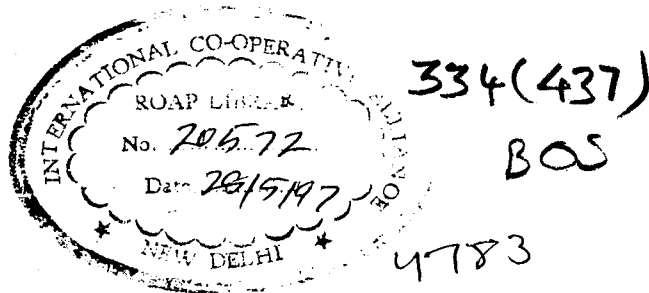 INTERNATIONAL CO-OPERATIVE ALLIANCE
ROAP LIBRARY
No. 20572
Date 26/5/97
★ NEW DELHI ★
334(437)
BOS
4783